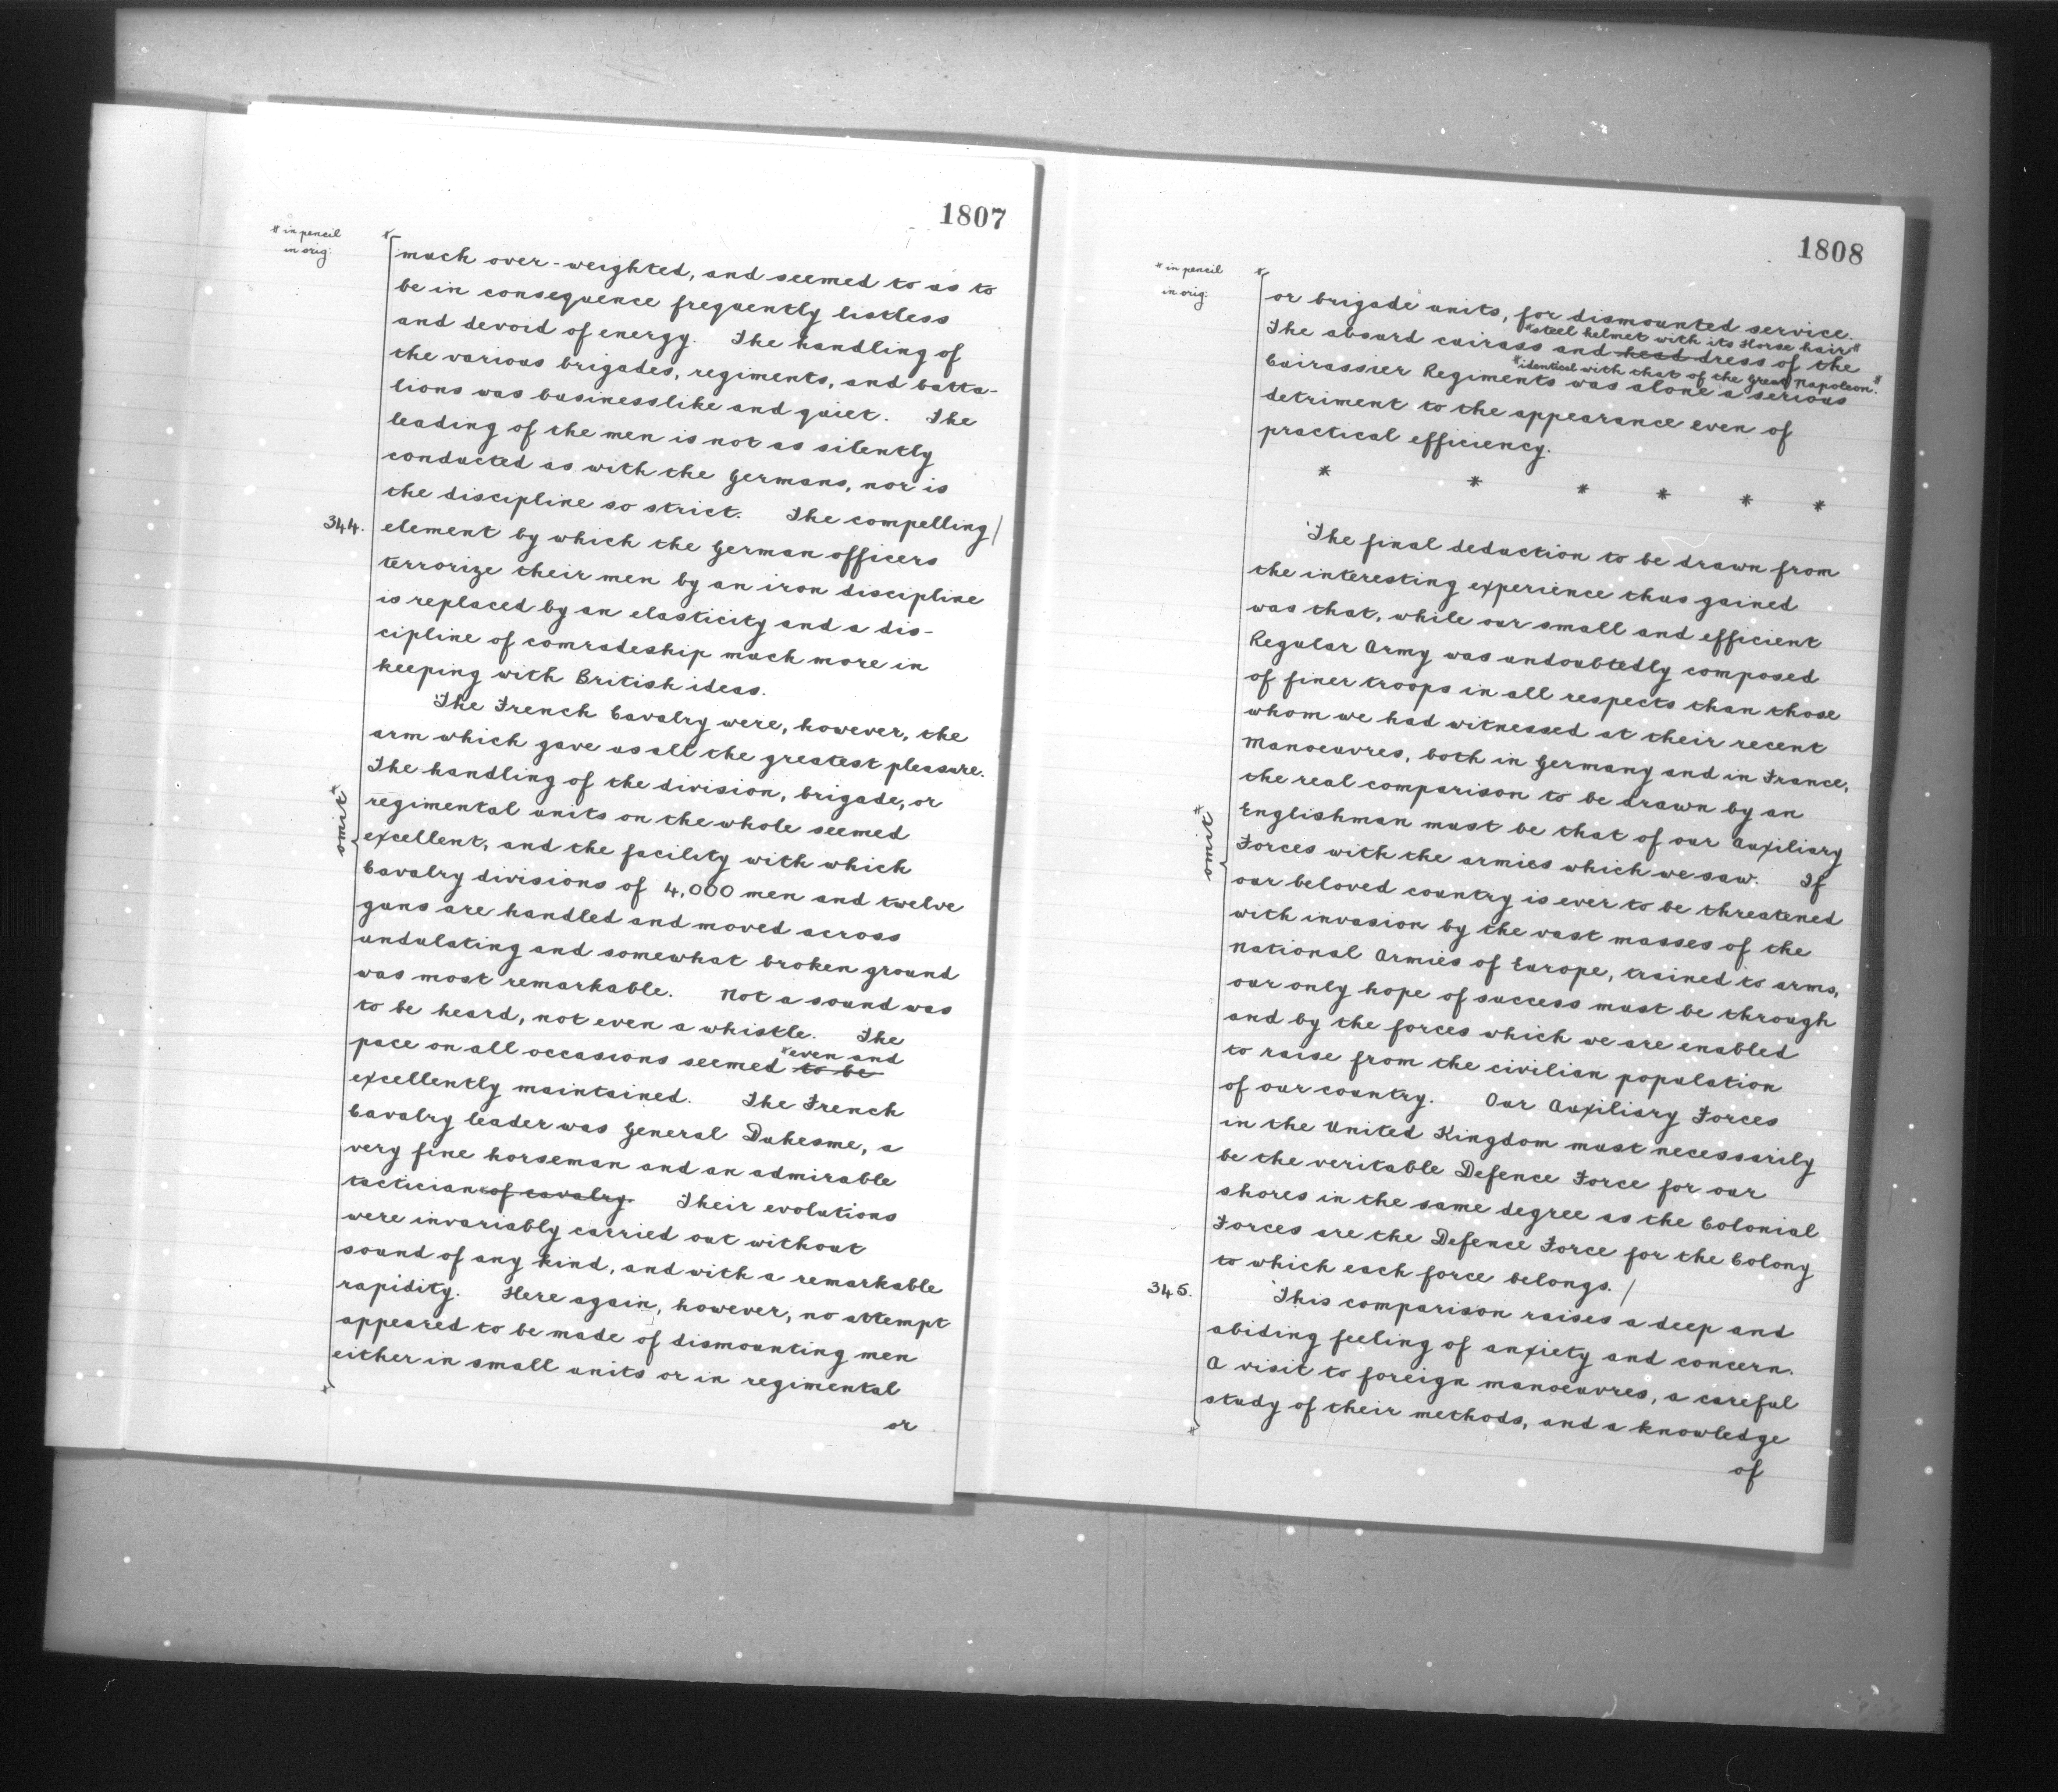 1807
* in pencil
in orig:
much over-weighted, and seemed to us to
be in consequence frequently listless
and devoid of energy. The handling of
the various brigades, regiments, and batta-
lions was businesslike and quiet. The
leading of the men is not as silently
conducted as with the Germans, nor is
the discipline so strict. The compelling/
344. element by which the German officers
terrorize their men by an iron discipline
is replaced by an elasticity and a dis-
cipline of comradeship much more in
keeping with British ideas.
'The French Cavalry were, however, the
arm which gave us all the greatest pleasure.
The handling of the division, brigade, or
regimental units on the whole seemed
omit*
excellent, and the facility with which
Cavalry divisions of 4,000 men and twelve
guns are handled and moved across
undulating and somewhat broken ground
was most remarkable. Not a sound was
to be heard, not even a whistle. The
*even and
pace on all occasions seemed to be
excellently maintained. The French
Cavalry leader was General Duhesme, a
very fine horseman and an admirable
tactician of cavalry. Their evolutions
were invariably carried out without
sound of any kind, and with a remarkable
rapidity. Here again, however, no attempt
appeared to be made of dismounting men
either in small units or in regimental
or
1808
* in pencil
in orig:
or brigade units, for dismounted service.
*steel helmet with its Horse hair*
The absurd cuirass and head dress of the
*identical with that of the Great Napoleon.*
Cuirassier Regiments was alone a serious
detriment to the appearance even of
practical efficiency.
* * * * * *
'The final deduction to be drawn from
the interesting experience thus gained
was that, while our small and efficient
Regular Army was undoubtedly composed
of finer troops in all respects than those
whom we had witnessed at their recent
Manoeuvres, both in Germany and in France,
the real comparison to be drawn by an
Englishman must be that of our Auxiliary
omit*
Forces with the armies which we saw. If
our beloved country is ever to be threatened
with invasion by the vast masses of the
National Armies of Europe, trained to arms,
our only hope of success must be through
and by the forces which we are enabled
to raise from the civilian population
of our country. Our Auxiliary Forces
in the United Kingdom must necessarily
be the veritable Defence Force for our
shores in the same degree as the Colonial
Forces are the Defence Force for the Colony
to which each force belongs. /
345. 'This comparison raises a deep and
abiding feeling of anxiety and concern.
A visit to foreign manoeuvres, a careful
study of their methods, and a knowledge
of